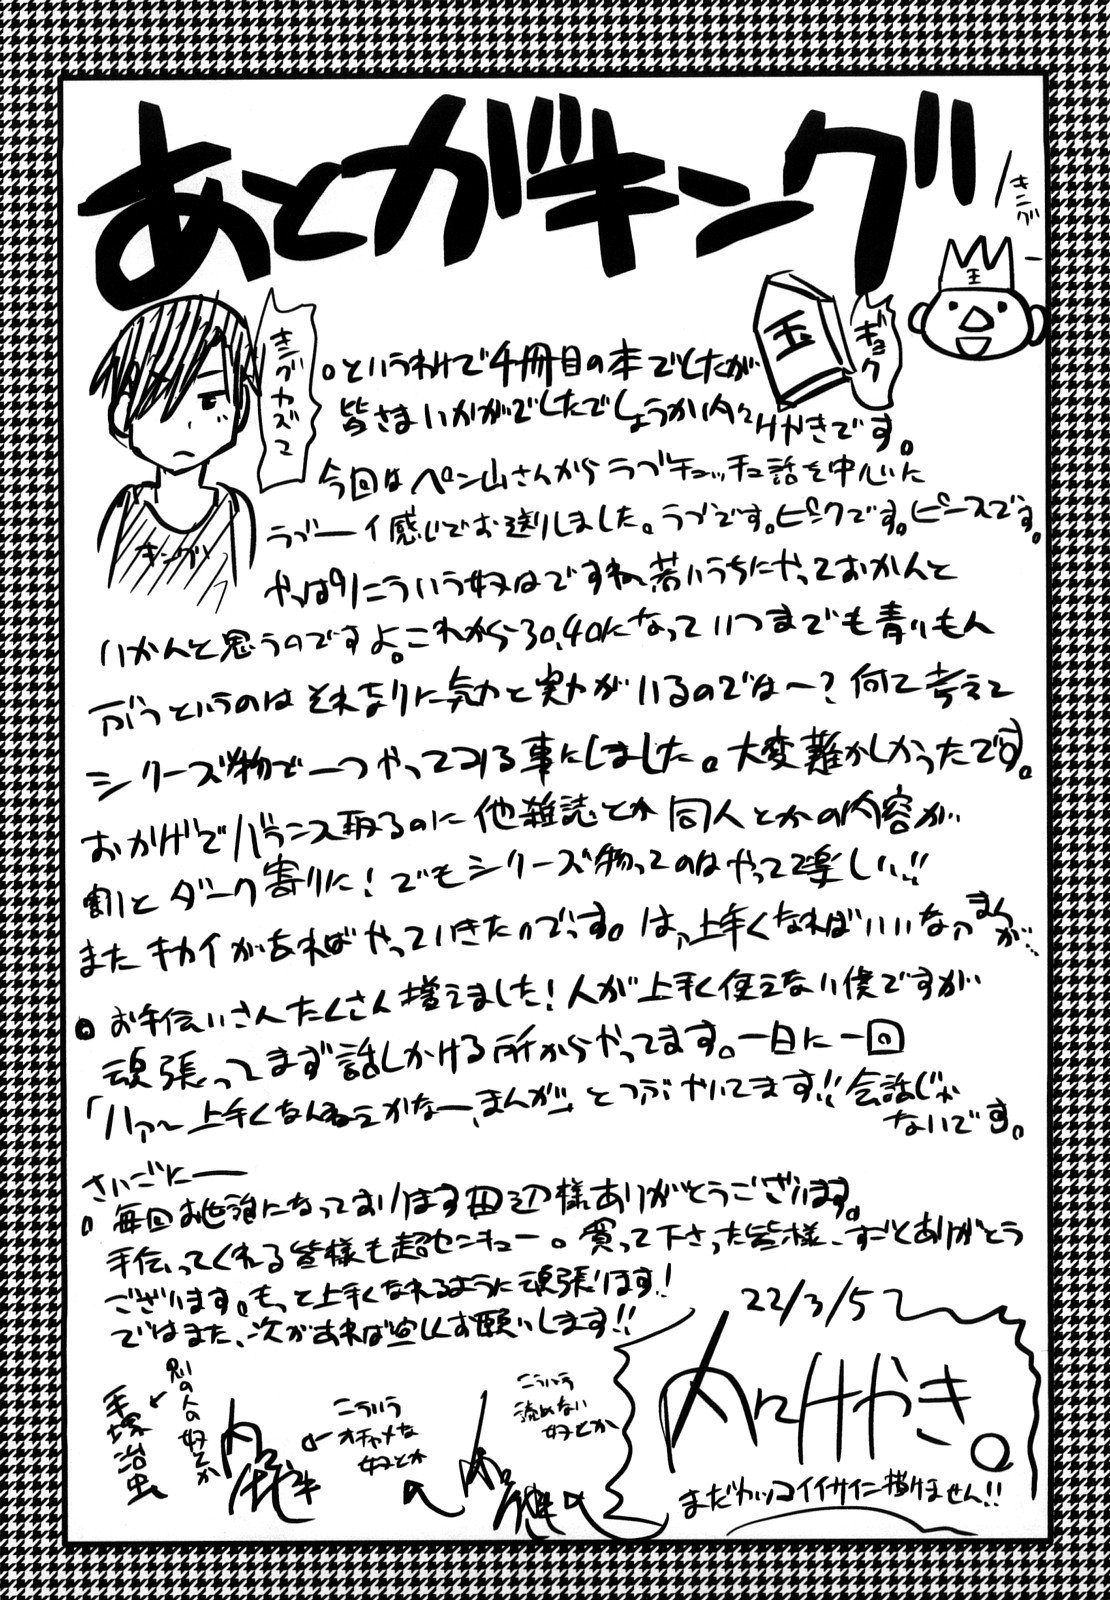 あとがキング
キング
王
玉
ギョク
キングカズって
キング
。というわけで4冊目の本でしたが
皆さまいかがでしたでしょうか内々けやきです。
今回はペン山さんからラブチュッチュ話を中心に
ラブーイ感じでお送りしました。ラブです。ピンクです。ピースです。
やっぱりこういう奴はですね、若いうちにやっておかんと
いかんと思うのですよ。これから30,40になっていつまでも青いもん
ぶつというのはそれなりに気力と実力がいるのではー?何て考えて
シリーズ物で一つやってみる事にしました。大変難かしかったです。
おかげでバランス取るのに他雑誌とか同人とかの内容が
割とダーク寄りに!でもシリーズ物ってのはやってて楽しい!!
またキカイがあればやっていきたいのです。はァ上手くなればいいなァまんが…
。お手伝いさんたくさん増えました!人が上手く使えない僕ですが
頑張ってまず話しかける所からやってます。一日に一回
「ハァ〜上手くなんねえかなー、まんが」とつぶやいてます!!会話じゃ
ないです。
さいごにー
。毎回お世話になっております田辺様ありがとうございます。
手伝ってくれる皆様も超センキュー。買って下さった皆様、すごとありがとう
ございます。もっと上手くなれるように頑張ります!
ではまた、次があれば宜しくお願いします!!
22/3/5
内々けやき。
まだカッコイイサイン描けません!!
こういう
読めない
奴とか
こういう
オチャメな
奴とか
内々
別の人の奴とか
手塚治虫